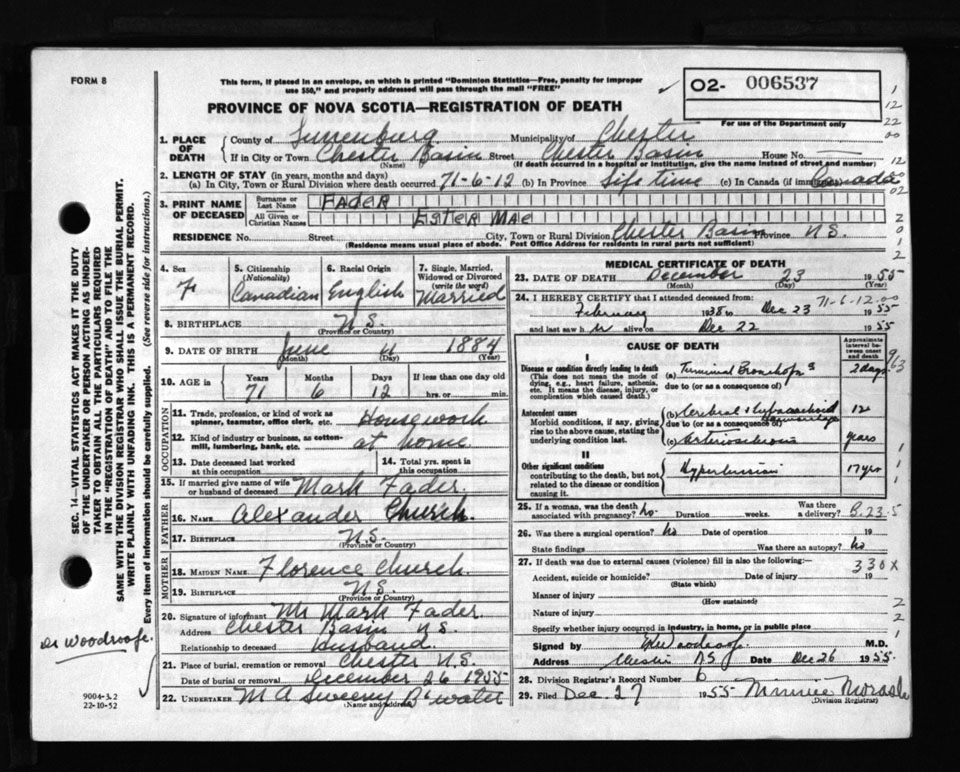 FORM 8
This form, if placed in an envelope, on which is printed "Dominion Statistics—Free, penalty for improper
use $50," and properly addressed will pass through the mail "FREE"
O2- 006537
For use of the Department only
PROVINCE OF NOVA SCOTIA—REGISTRATION OF DEATH
1. PLACE OF DEATH County of Lunenburg Municipality of Chester
If in City or Town Chester Basin Street Chester Basin House No.
(Name) (If death occurred in a hospital or institution, give the name instead of street and number)
2. LENGTH OF STAY (in years, months and days)
(a) In City, Town or Rural Division where death occurred 71-6-12 (b) In Province Life time (c) In Canada (if immigrant) Canada
3. PRINT NAME OF DECEASED Surname or Last Name FADER
All Given or Christian Names ESTER MAE
RESIDENCE No. Street City, Town or Rural Division Chester Basin Province N.S.
(Residence means usual place of abode. Post Office Address for residents in rural parts not sufficient)
4. Sex F
5. Citizenship (Nationality) Canadian
6. Racial Origin English
7. Single, Married, Widowed or Divorced (write the word) Married
8. BIRTHPLACE N.S.
(Province or Country)
9. DATE OF BIRTH June 11 1884
(Month) (Day) (Year)
10. AGE in Years 71 Months 6 Days 12 If less than one day old hrs. or min.
OCCUPATION
11. Trade, profession, or kind of work as spinner, teamster, office clerk, etc. Housework
12. Kind of industry or business, as cotton-mill, lumbering, bank, etc. at home
13. Date deceased last worked at this occupation
14. Total yrs. spent in this occupation
15. If married give name of wife or husband of deceased Mark Fader
FATHER
16. NAME Alexander Church
17. BIRTHPLACE N.S.
(Province or Country)
MOTHER
18. MAIDEN NAME Florence Church
19. BIRTHPLACE N.S.
(Province or Country)
20. Signature of informant Mr Mark Fader
Address Chester Basin N.S.
Relationship to deceased Husband
21. Place of burial, cremation or removal Chester N.S.
Date of burial or removal December 26 1955
22. UNDERTAKER M A Sweeny B'water
(Name and address)
MEDICAL CERTIFICATE OF DEATH
23. DATE OF DEATH December 23 1955
(Month) (Day) (Year)
71-6-12
24. I HEREBY CERTIFY that I attended deceased from:
February 1938 to Dec 23 1955
and last saw h alive on Dec 22 1955
CAUSE OF DEATH
Approximate interval between onset and death
I
Disease or condition directly leading to death
(This does not mean the mode of dying, e.g., heart failure, asthenia, etc. It means the disease, injury, or complication which caused death.)
(a) Terminal 2 days
due to (or as a consequence of)
Antecedent causes
Morbid conditions, if any, giving rise to the above cause, stating the underlying condition last.
(b) Cerebral & Subarachnoid Haemorrhage 12
due to (or as a consequence of)
(c) Arteriosclerosis years
II
Other significant conditions
contributing to the death, but not related to the disease or condition causing it.
Hypertension 17 yrs
25. If a woman, was the death associated with pregnancy? No Duration weeks. Was there a delivery?
26. Was there a surgical operation? No Date of operation 19
State findings Was there an autopsy? No
27. If death was due to external causes (violence) fill in also the following:—
330X
Accident, suicide or homicide? Date of injury 19
(State which)
Manner of injury
(How sustained)
Nature of injury
Specify whether injury occurred in industry, in home, or in public place
Signed by M.D.
Address Chester N.S. Date Dec 26 1955
28. Division Registrar's Record Number 6
29. Filed Dec. 27 1955 Minnie
(Division Registrar)
SEC. 14—VITAL STATISTICS ACT MAKES IT THE DUTY
OF THE UNDERTAKER OR PERSON ACTING AS UNDER-
TAKER TO OBTAIN ALL THE PARTICULARS REQUIRED
IN THE "REGISTRATION OF DEATH" AND TO FILE THE
SAME WITH THE DIVISION REGISTRAR WHO SHALL ISSUE THE BURIAL PERMIT.
WRITE PLAINLY WITH UNFADING INK. THIS IS A PERMANENT RECORD.
Every item of information should be carefully supplied. (See reverse side for instructions.)
Dr Woodroofe.
9004-3.2
22-10-52